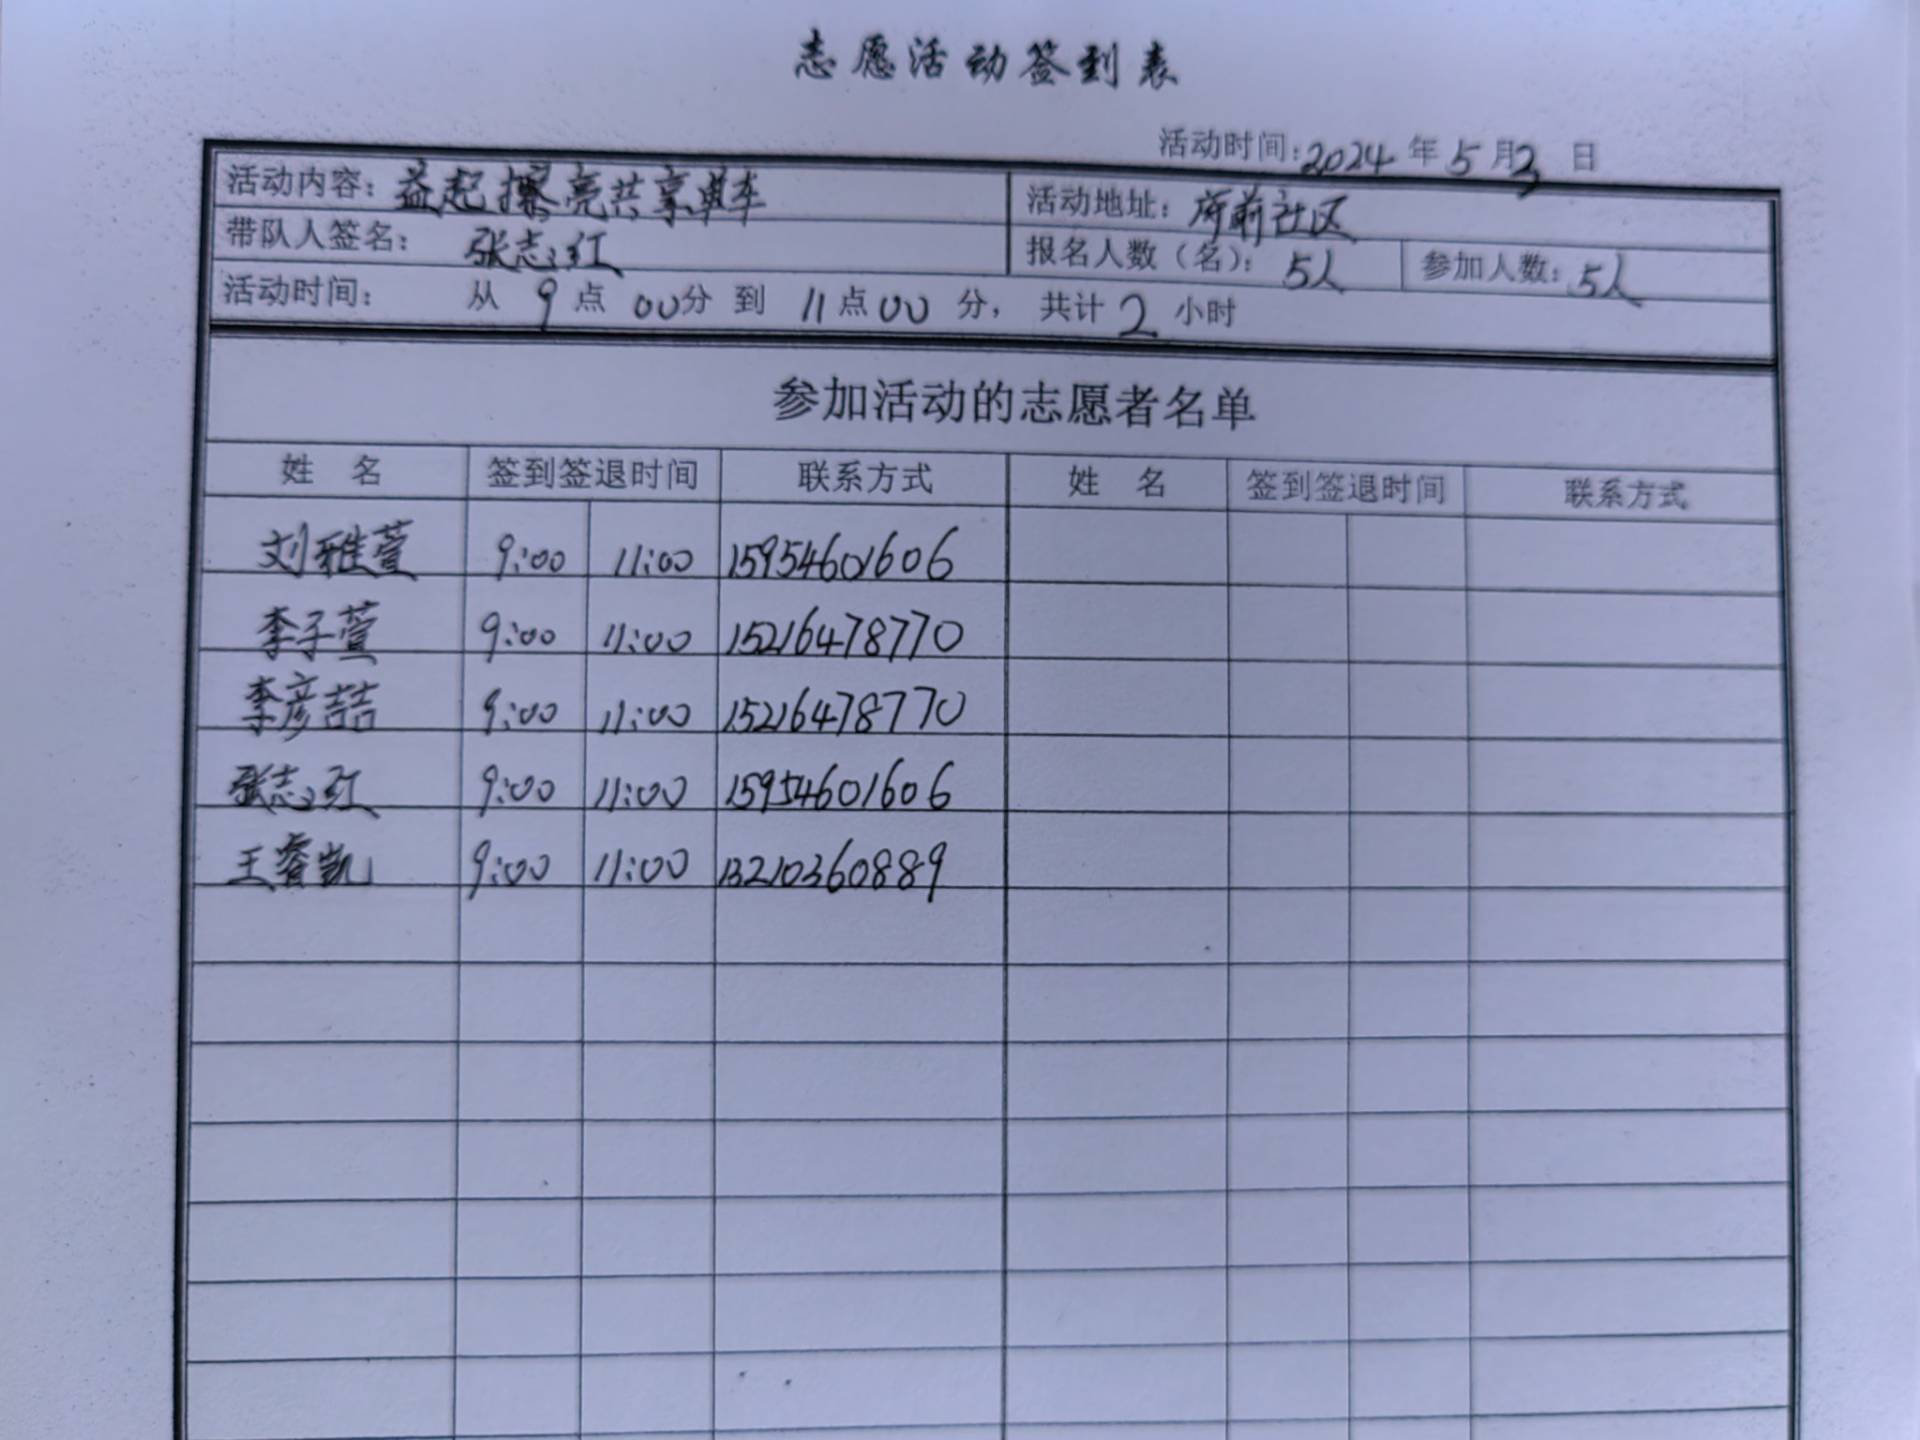 志愿活动签到表
活动时间：2024年5月3日
活动内容：益起擦亮共享单车 活动地址：府前社区
带队人签名：张志红 报名人数（名）：5人 参加人数：5人
活动时间： 从 9 点 00分 到 11点00 分， 共计 2 小时
参加活动的志愿者名单
姓 名 签到签退时间 联系方式 姓 名 签到签退时间 联系方式
刘雅萱 9:00 11:00 15954601606
李子萱 9:00 11:00 15216478770
李彦喆 9:00 11:00 15216478770
张志红 9:00 11:00 15954601606
王睿凯 9:00 11:00 13210360889